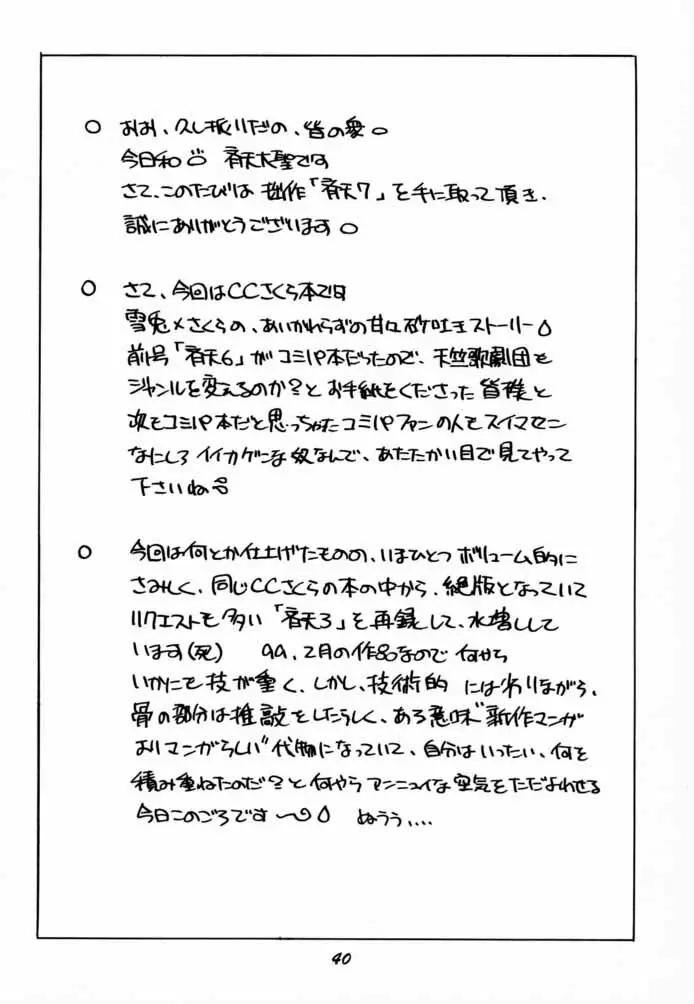 ○ おお、久し振りだの、皆の衆。
今日和 斉天大聖です
さて、このたびは拙作「斉天7」を手に取って頂き、
誠にありがとうございます。
○ さて、今回はCCさくら本です
雪兎×さくらの、あいかわらずの甘々砂吐きストーリー
前号「斉天6」がコミパ本だったので、天竺歌劇団も
ジャンルを変えるのか?とお手紙をくださった皆様と
次もコミパ本だと思っちゃたコミパファンの人もスイマセン
なにしろイイカゲンな奴なんで、あたたかい目で見てやって
下さいね
○ 今回は何とか仕上げたものの、いまひとつボリューム的に
さみしく、同じCCさくらの本の中から、絶版となっていて
リクエストも多い「斉天3」を再録して、水増しして
います(死) 99、2月の作品なので何やら
いかにも技が重く、しかし、技術的には劣りながら、
骨の部分は推敲をしたらしく、ある意味"新作マンガ
よりマンガらしい"代物になっていて、自分はいったい、何を
積み重ねたのだ?と何やらアンニュイな空気をただよわせる
今日このごろです ぬうう....
40